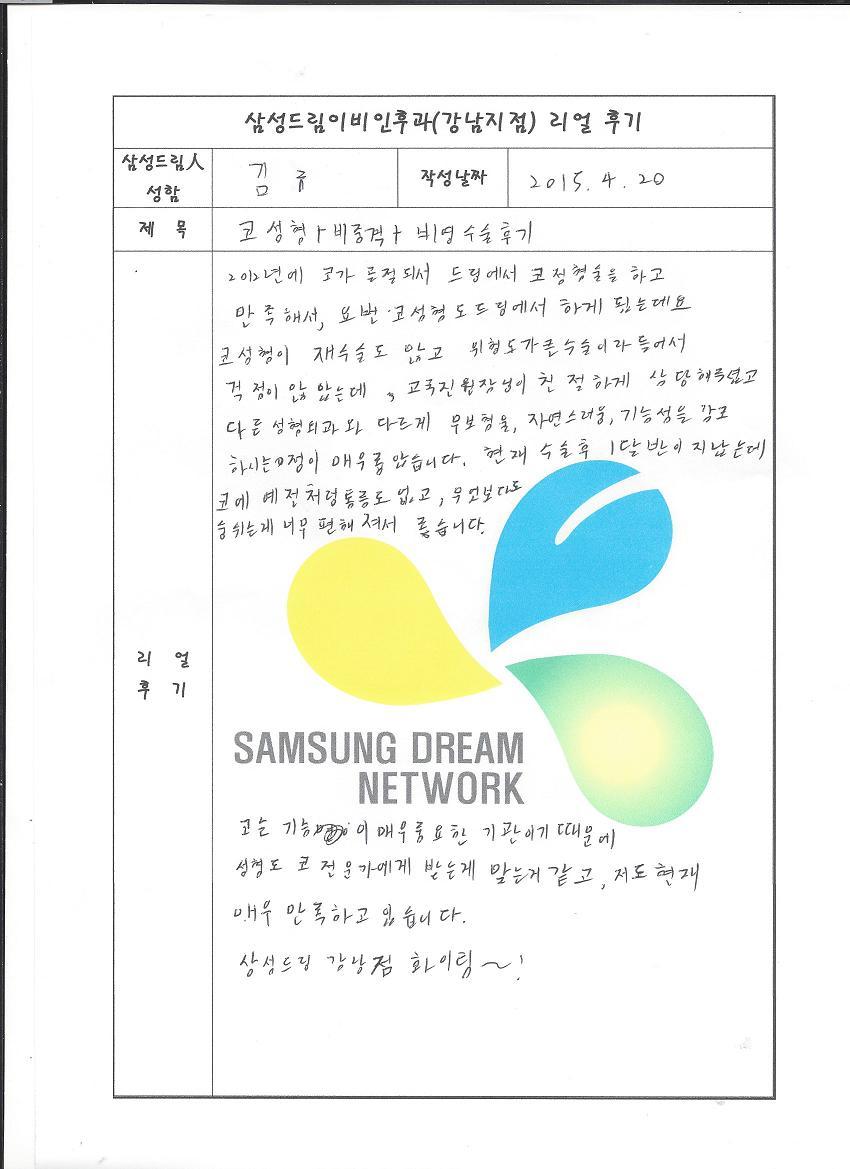 삼성드림이비인후과(강남지점) 리얼 후기
삼성드림人
성함
김
작성날짜
2015. 4. 20
제 목
코성형 + 비중격 + 비염 수술후기
2012년에 코가 골절되서 드림에서 코정형술을 하고
만족해서, 요번 코성형도 드림에서 하게 됬는데요
코성형이 재수술도 많고 위험도가큰수술이라 들어서
걱정이 많았는데, 고국진 원장님이 친절하게 상담해주셨고
다른 성형외과와 다르게 무보형물, 자연스러움, 기능성을 강조
하시는 점이 매우좋았습니다. 현재 수술후 1달반이 지났는데
코에 예전처럼통증도 없고, 무엇보다도
숨쉬는게 너무 편해져서 좋습니다.
리 얼
후 기
SAMSUNG DREAM
NETWORK
코는 기능이 매우중요한 기관이기 때문에
성형도 코 전문가에게 받는게 맞는거 같고, 저도 현재
매우 만족하고 있습니다.
삼성드림 강남점 화이팅~!